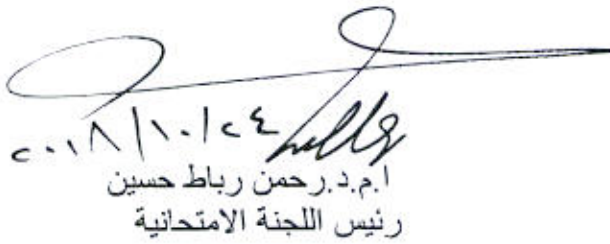 ٢٠١٨/١٠/٢٤
ا.م.د.رحمن رباط حسين
رئيس اللجنة الامتحانية